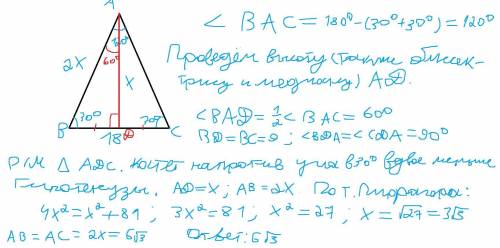 A
120°
60°
2x
x
30°
30°
B
D
C
18
∠BAC=180°-(30°+30°)=120°
Проведём высоту (также биссек-
трису и медиану) AD.
∠BAD=1/2∠BAC=60°
BD=BC=9; ∠BDA=∠CDA=90°
Р/м Δ ADC. Катет напротив угла в 30° вдвое меньше
Гипотенузы. AD=x; AB=2x По т. Пифагора:
4x²=x²+81; 3x²=81; x²=27; x=√27=3√3
AB=AC=2x=6√3 Ответ: 6√3